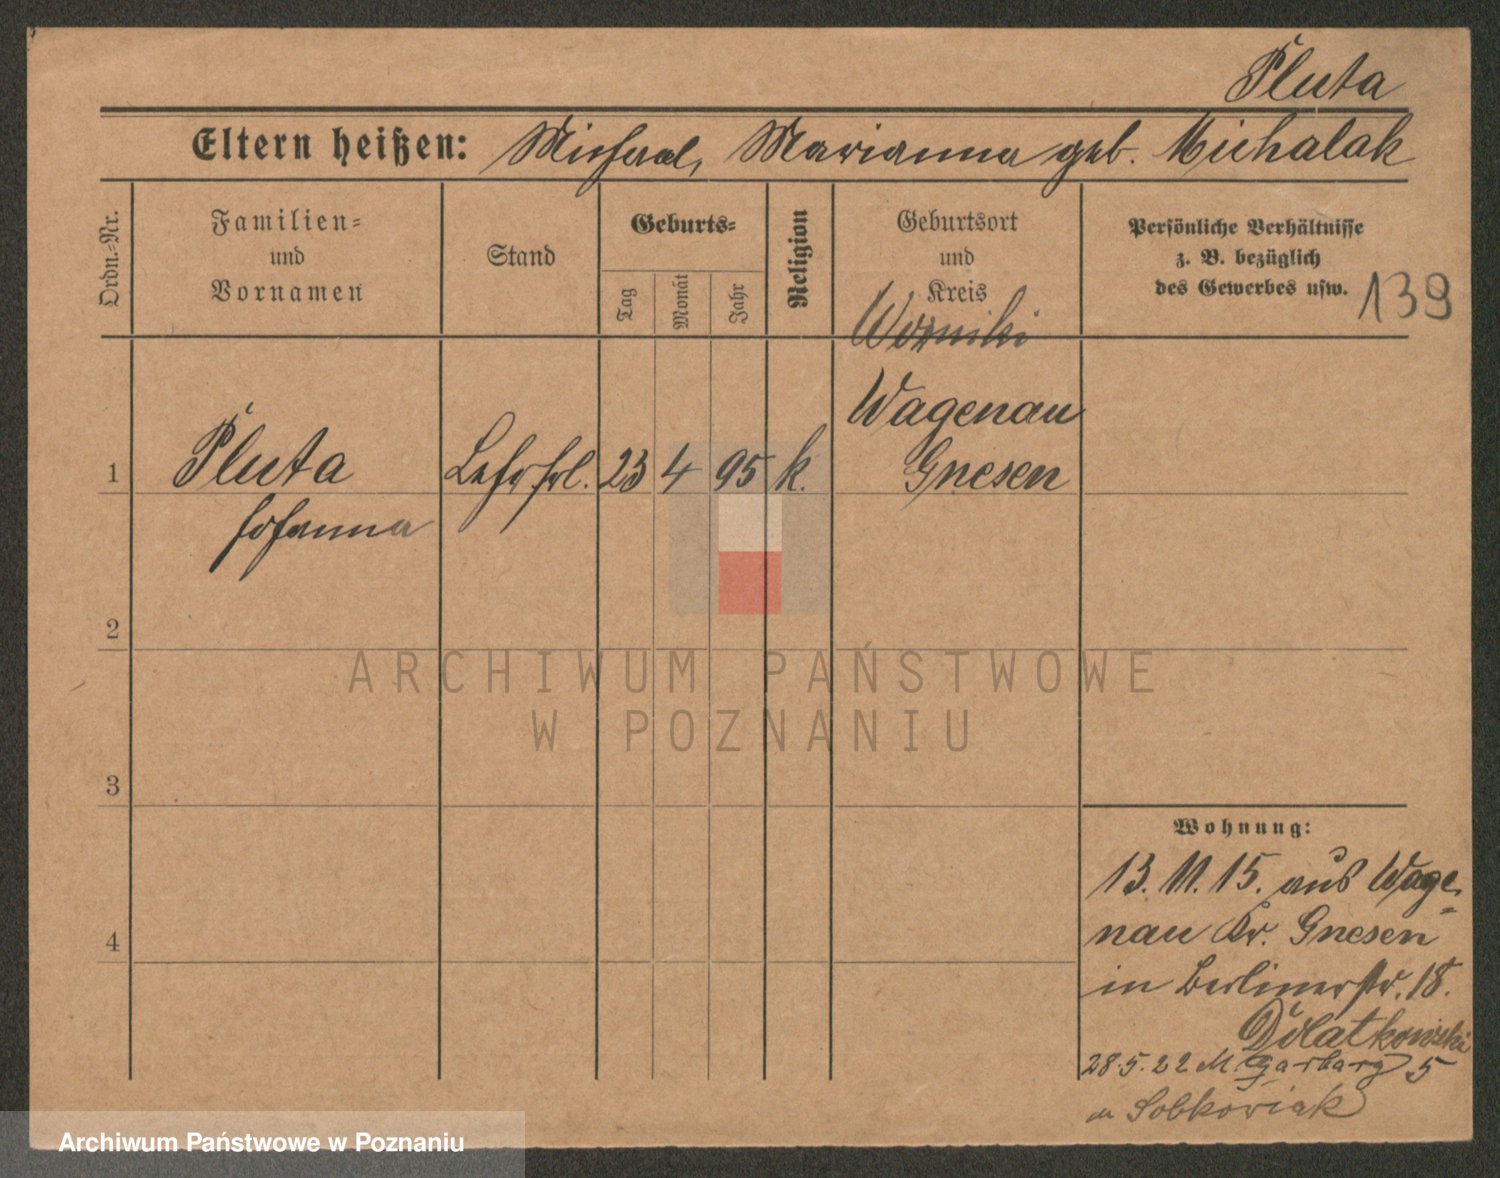 Pluta
Eltern heißen: Michael, Marianna geb. Michalak
Ordn.-Nr.
Familien-
und
Vornamen
Stand
Geburts-
Tag
Monat
Jahr
Religion
Geburtsort
und
Kreis
Persönliche Verhältnisse
z. B. bezüglich
des Gewerbes usw.
139
Wagenau
1 Pluta Lehrfrl. 23 4 95 k. Gnesen
Johanna
2
3
4
Wohnung:
13.11.15. aus Wage-
nau Kr. Gnesen
in Berlinerstr. 18.
28.5.22 M. Garbary 5
Sobkowiak
ARCHIWUM PAŃSTWOWE
W POZNANIU
Archiwum Państwowe w Poznaniu